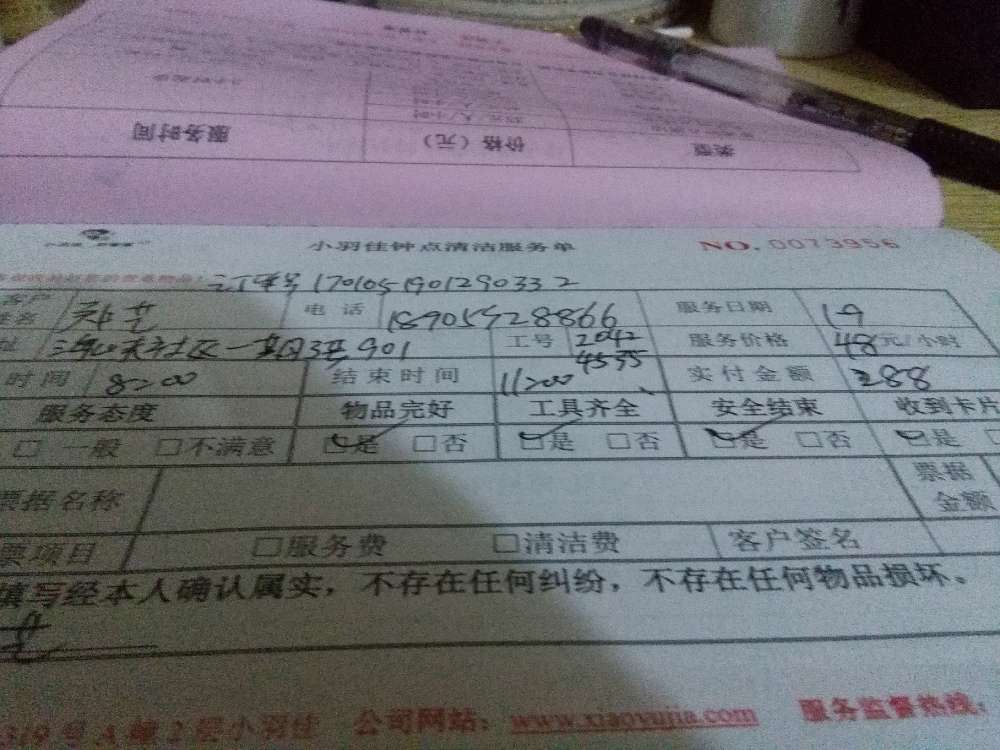 服务时间 价格（元） 类型
小羽佳钟点清洁服务单 NO.0073956
订单号 170105190129033 2
客户 电话 18905928866 服务日期 19
姓名
址 901 工号 2042 4535 服务价格 48元/小时
时间 8:00 结束时间 11:00 实付金额 288
服务态度 物品完好 工具齐全 安全结束 收到卡片
□一般 □不满意 □是 □否 □是 □否 □是 □否 □是
票据名称 票据金额
票项目 □服务费 □清洁费 客户签名
填写经本人确认属实，不存在任何纠纷，不存在任何物品损坏。
319号A幢2层小羽佳 公司网站：www.xiaoyujia.com 服务监督热线：